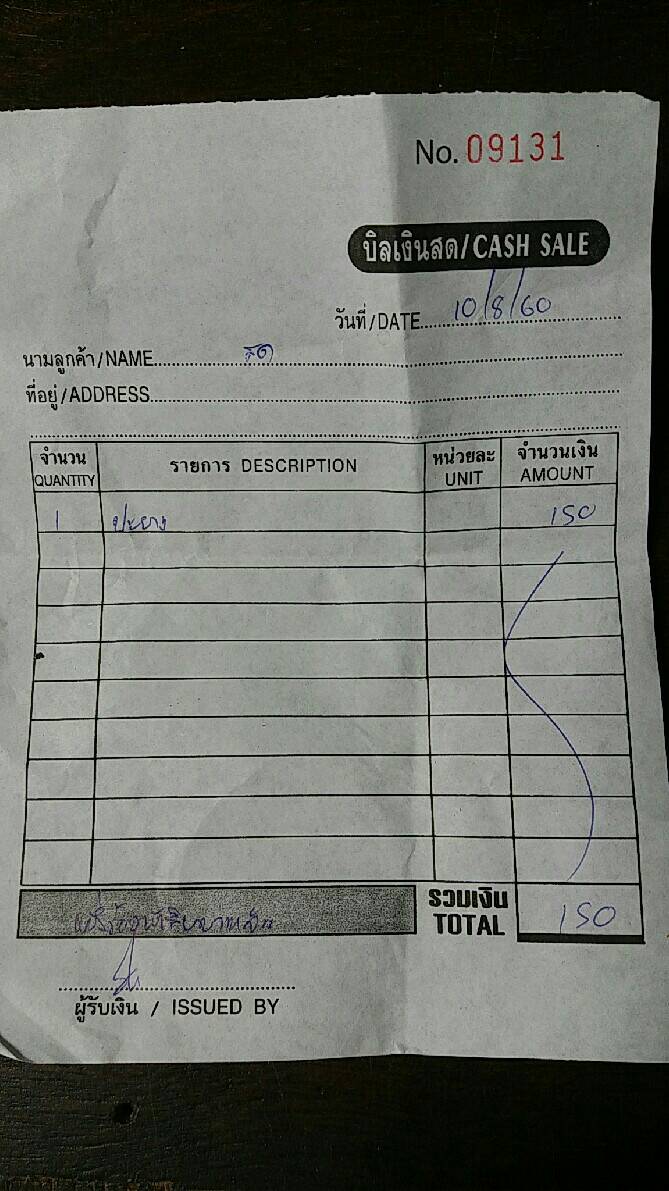 No. 09131
บิลเงินสด/CASH SALE
วันที่/DATE 10/8/60
นามลูกค้า/NAME
ที่อยู่/ADDRESS
จำนวน QUANTITY รายการ DESCRIPTION หน่วยละ UNIT จำนวนเงิน AMOUNT
1 ปะยาง 150
รวมเงิน TOTAL 150
ผู้รับเงิน / ISSUED BY